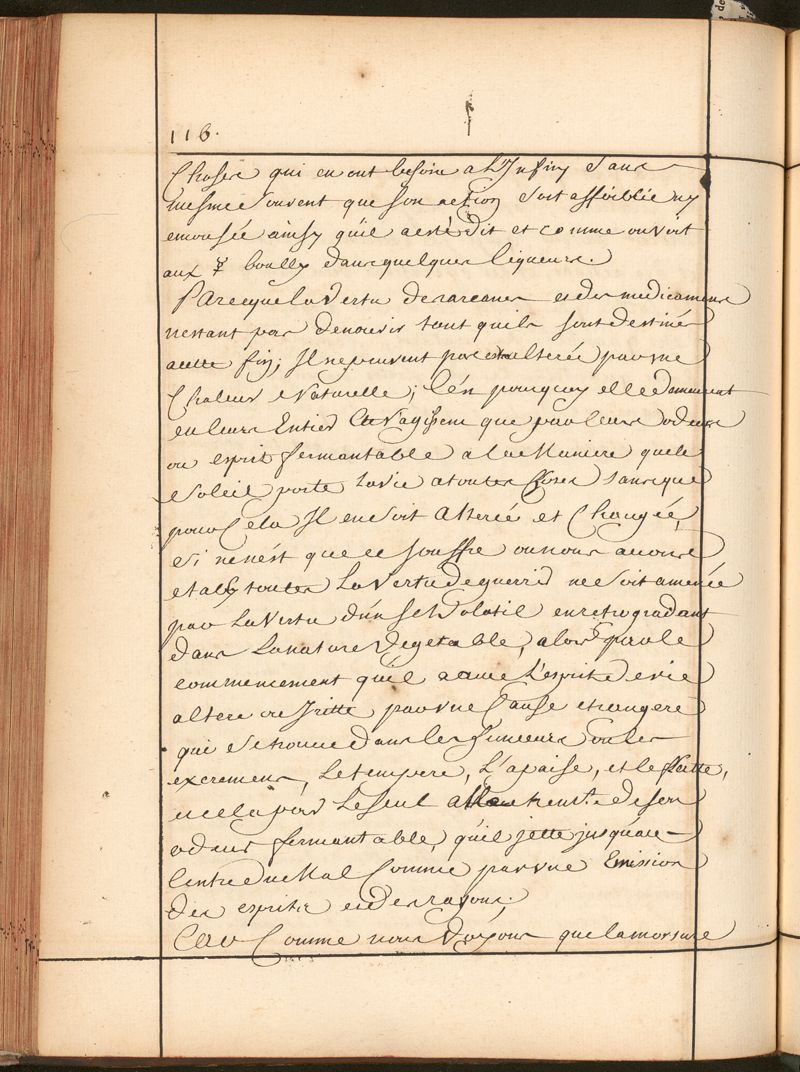 116.
Choses qui en ont besoin a L'Infiny Sans
mesme Souvent que Son action Soit affoiblie ny
emousée ainsy quil a esté dit et comme on voit
aux ☿ boully dans quelques liqueurs.
Parceque la Vertu des arcanes et des medicamens
nestant pas de nourir tant quils sont destinés
a cette fin; Il ne peuvent pas estre alterée par une
Chaleur Naturelle; C'ést pourquoy elle demeurent
en leurs Entier et n'agissent que par leurs odeurs
ou esprit fermantable a la Maniere que le
Soleil porte la vie a toutes Choses sans que
pour Cela Il en Soit Alterée et Changée,
Si ne n'ést que ce souffre ou nous avons
etably toutes La Vertu de guerrir ne Soit amenée
par La Vertu d'ún Sel Volatil en retrogradant
dans La nature Vegetable, alors par le
commencement qu'il a avec L'esprit de vie
alteré ou Iritté par une Cause etrangere
qui Se trouve dans les humeurs ou les
excremens, Le tempere, L'apaise, et le flatte,
et cela par Le Seul de son
odeur fermantable, qu'il jette jusqu'au
Centre du Mal Comme par une Emission
des esprits et des rayons.
Car Comme nous Voyons que la morsure